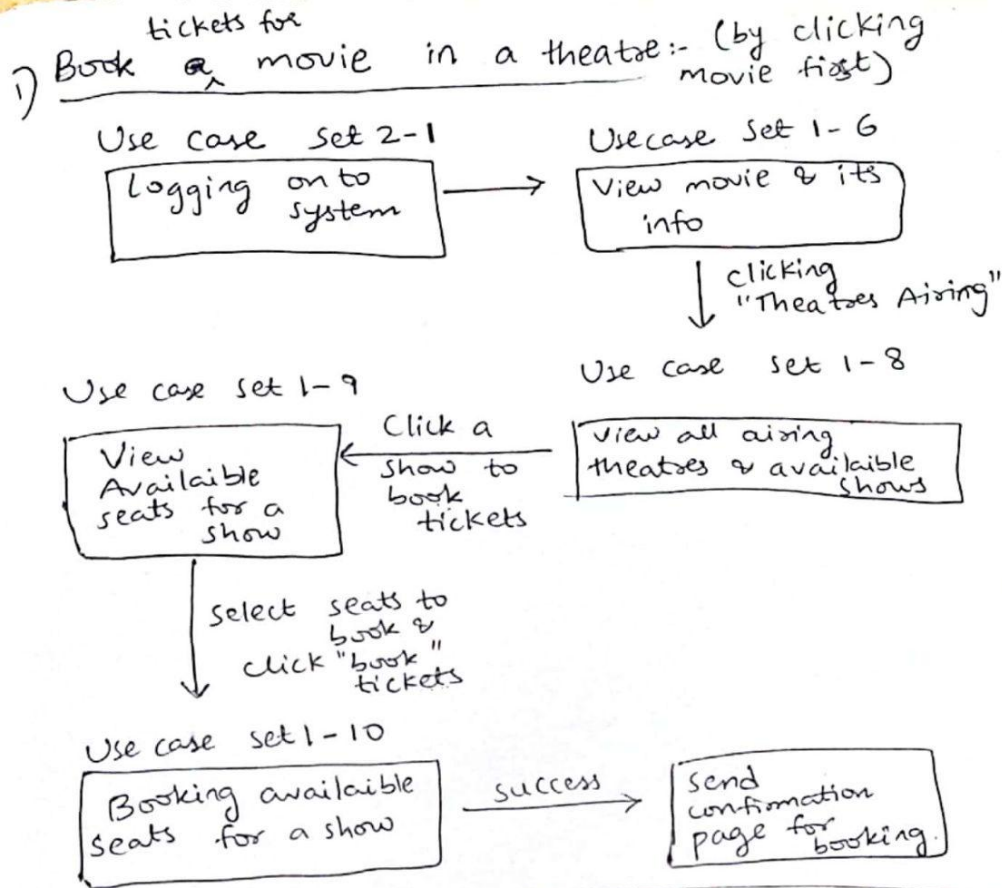 tickets for
1) Book a movie in a theatre:- (by clicking
movie first)
Use case Set 2-1
Logging onto
system
Usecase Set 1-6
View movie & its
info
clicking
"Theatres Airing"
Use case set 1-8
view all airing
theatres & availaible
shows
Click a
show to
book
tickets
Use case set 1-9
View
Availaible
seats for a
show
select seats to
book &
click "book"
tickets
Use case set 1-10
Booking availaible
seats for a show
success
send
confirmation
page for
booking.